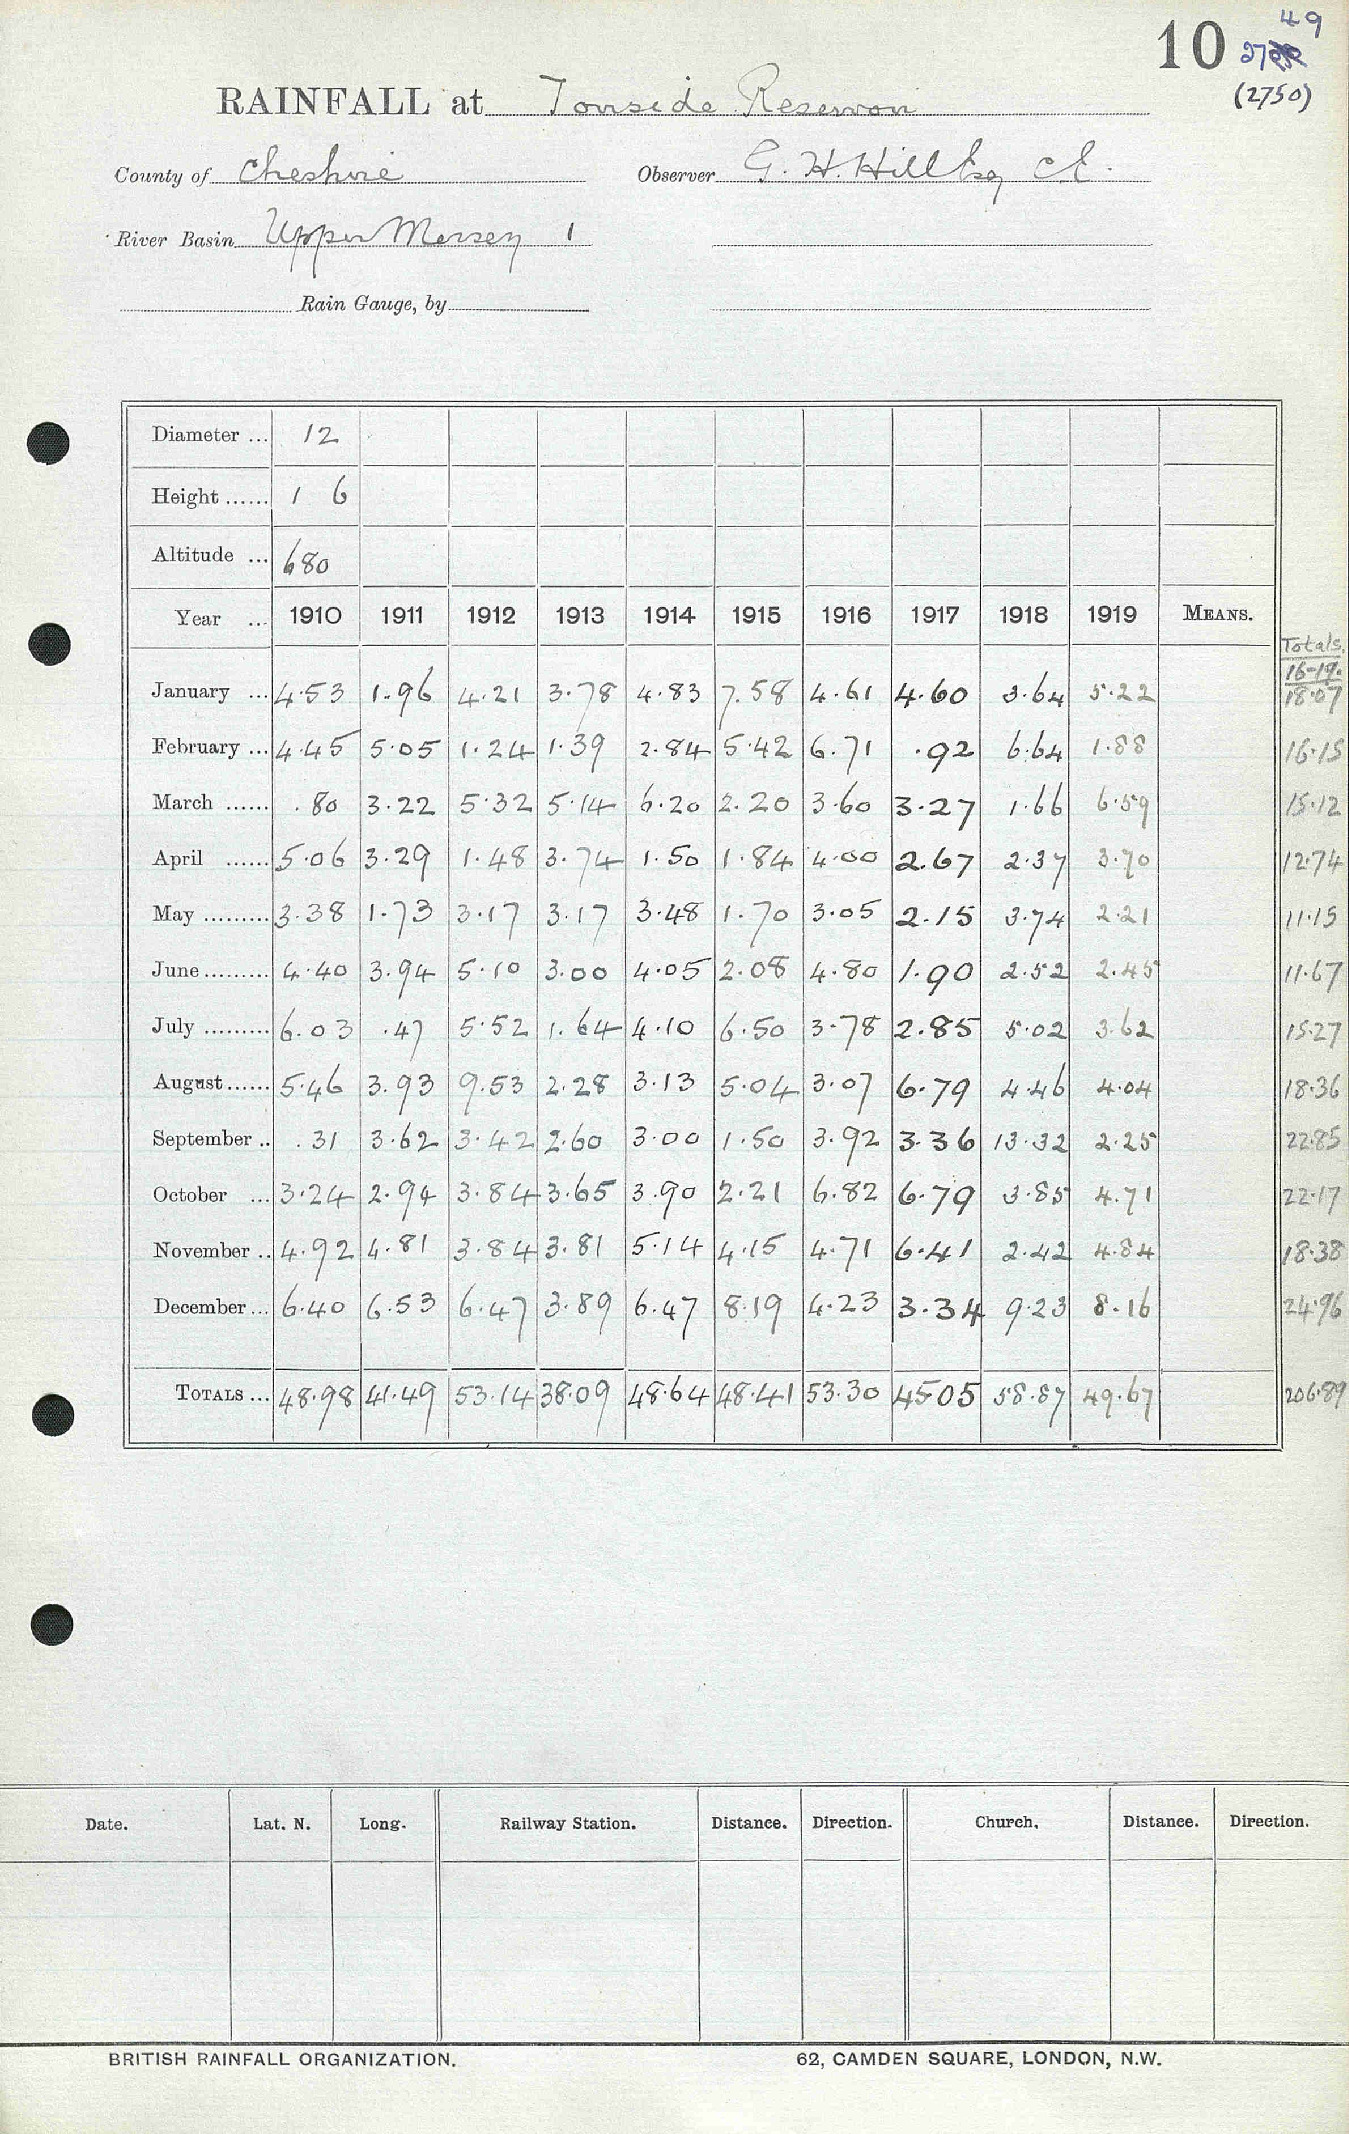 10 49
(2750)
RAINFALL at Torside Reservoir
County of Cheshire Observer G. H. Hill Esq C.E.
River Basin Upper Mersey 1
Rain Gauge, by
Diameter ... 12
Height ...... 1 6
Altitude ... 680
Year ... 1910 1911 1912 1913 1914 1915 1916 1917 1918 1919 MEANS. Totals.
16-19.
January ... 4.53 1.96 4.21 3.78 4.83 7.58 4.61 4.60 3.64 5.22 18.07
February ... 4.45 5.05 1.24 1.39 2.84 5.42 6.71 .92 6.64 1.88 16.15
March ...... .80 3.22 5.32 5.14 6.20 2.20 3.60 3.27 1.66 6.59 15.12
April ...... 5.06 3.29 1.48 3.74 1.50 1.84 4.00 2.67 2.37 3.70 12.74
May ......... 3.38 1.73 3.17 3.17 3.48 1.70 3.05 2.15 3.74 2.21 11.15
June ......... 4.40 3.94 5.10 3.00 4.05 2.08 4.80 1.90 2.52 2.45 11.67
July ......... 6.03 .47 5.52 1.64 4.10 6.50 3.78 2.85 5.02 3.62 15.27
August ...... 5.46 3.93 9.53 2.28 3.13 5.04 3.07 6.79 4.46 4.04 18.36
September .. .31 3.62 3.42 2.60 3.00 1.50 3.92 3.36 13.32 2.25 22.85
October ... 3.24 2.94 3.84 3.65 3.90 2.21 6.82 6.79 3.85 4.71 22.17
November .. 4.92 4.81 3.84 3.81 5.14 4.15 4.71 6.41 2.42 4.84 18.38
December ... 6.40 6.53 6.47 3.89 6.47 8.19 4.23 3.34 9.23 8.16 24.96
TOTALS ... 48.98 41.49 53.14 38.09 48.64 48.41 53.30 45.05 58.87 49.67 206.89
Date. Lat. N. Long. Railway Station. Distance. Direction. Church. Distance. Direction.
BRITISH RAINFALL ORGANIZATION. 62, CAMDEN SQUARE, LONDON, N.W.